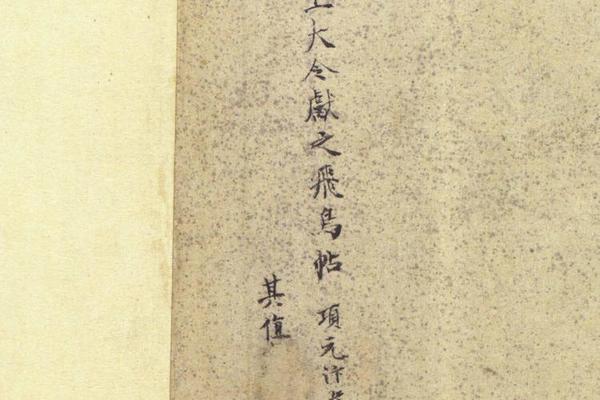 大令獻之飛鳥帖 項元汴
其值